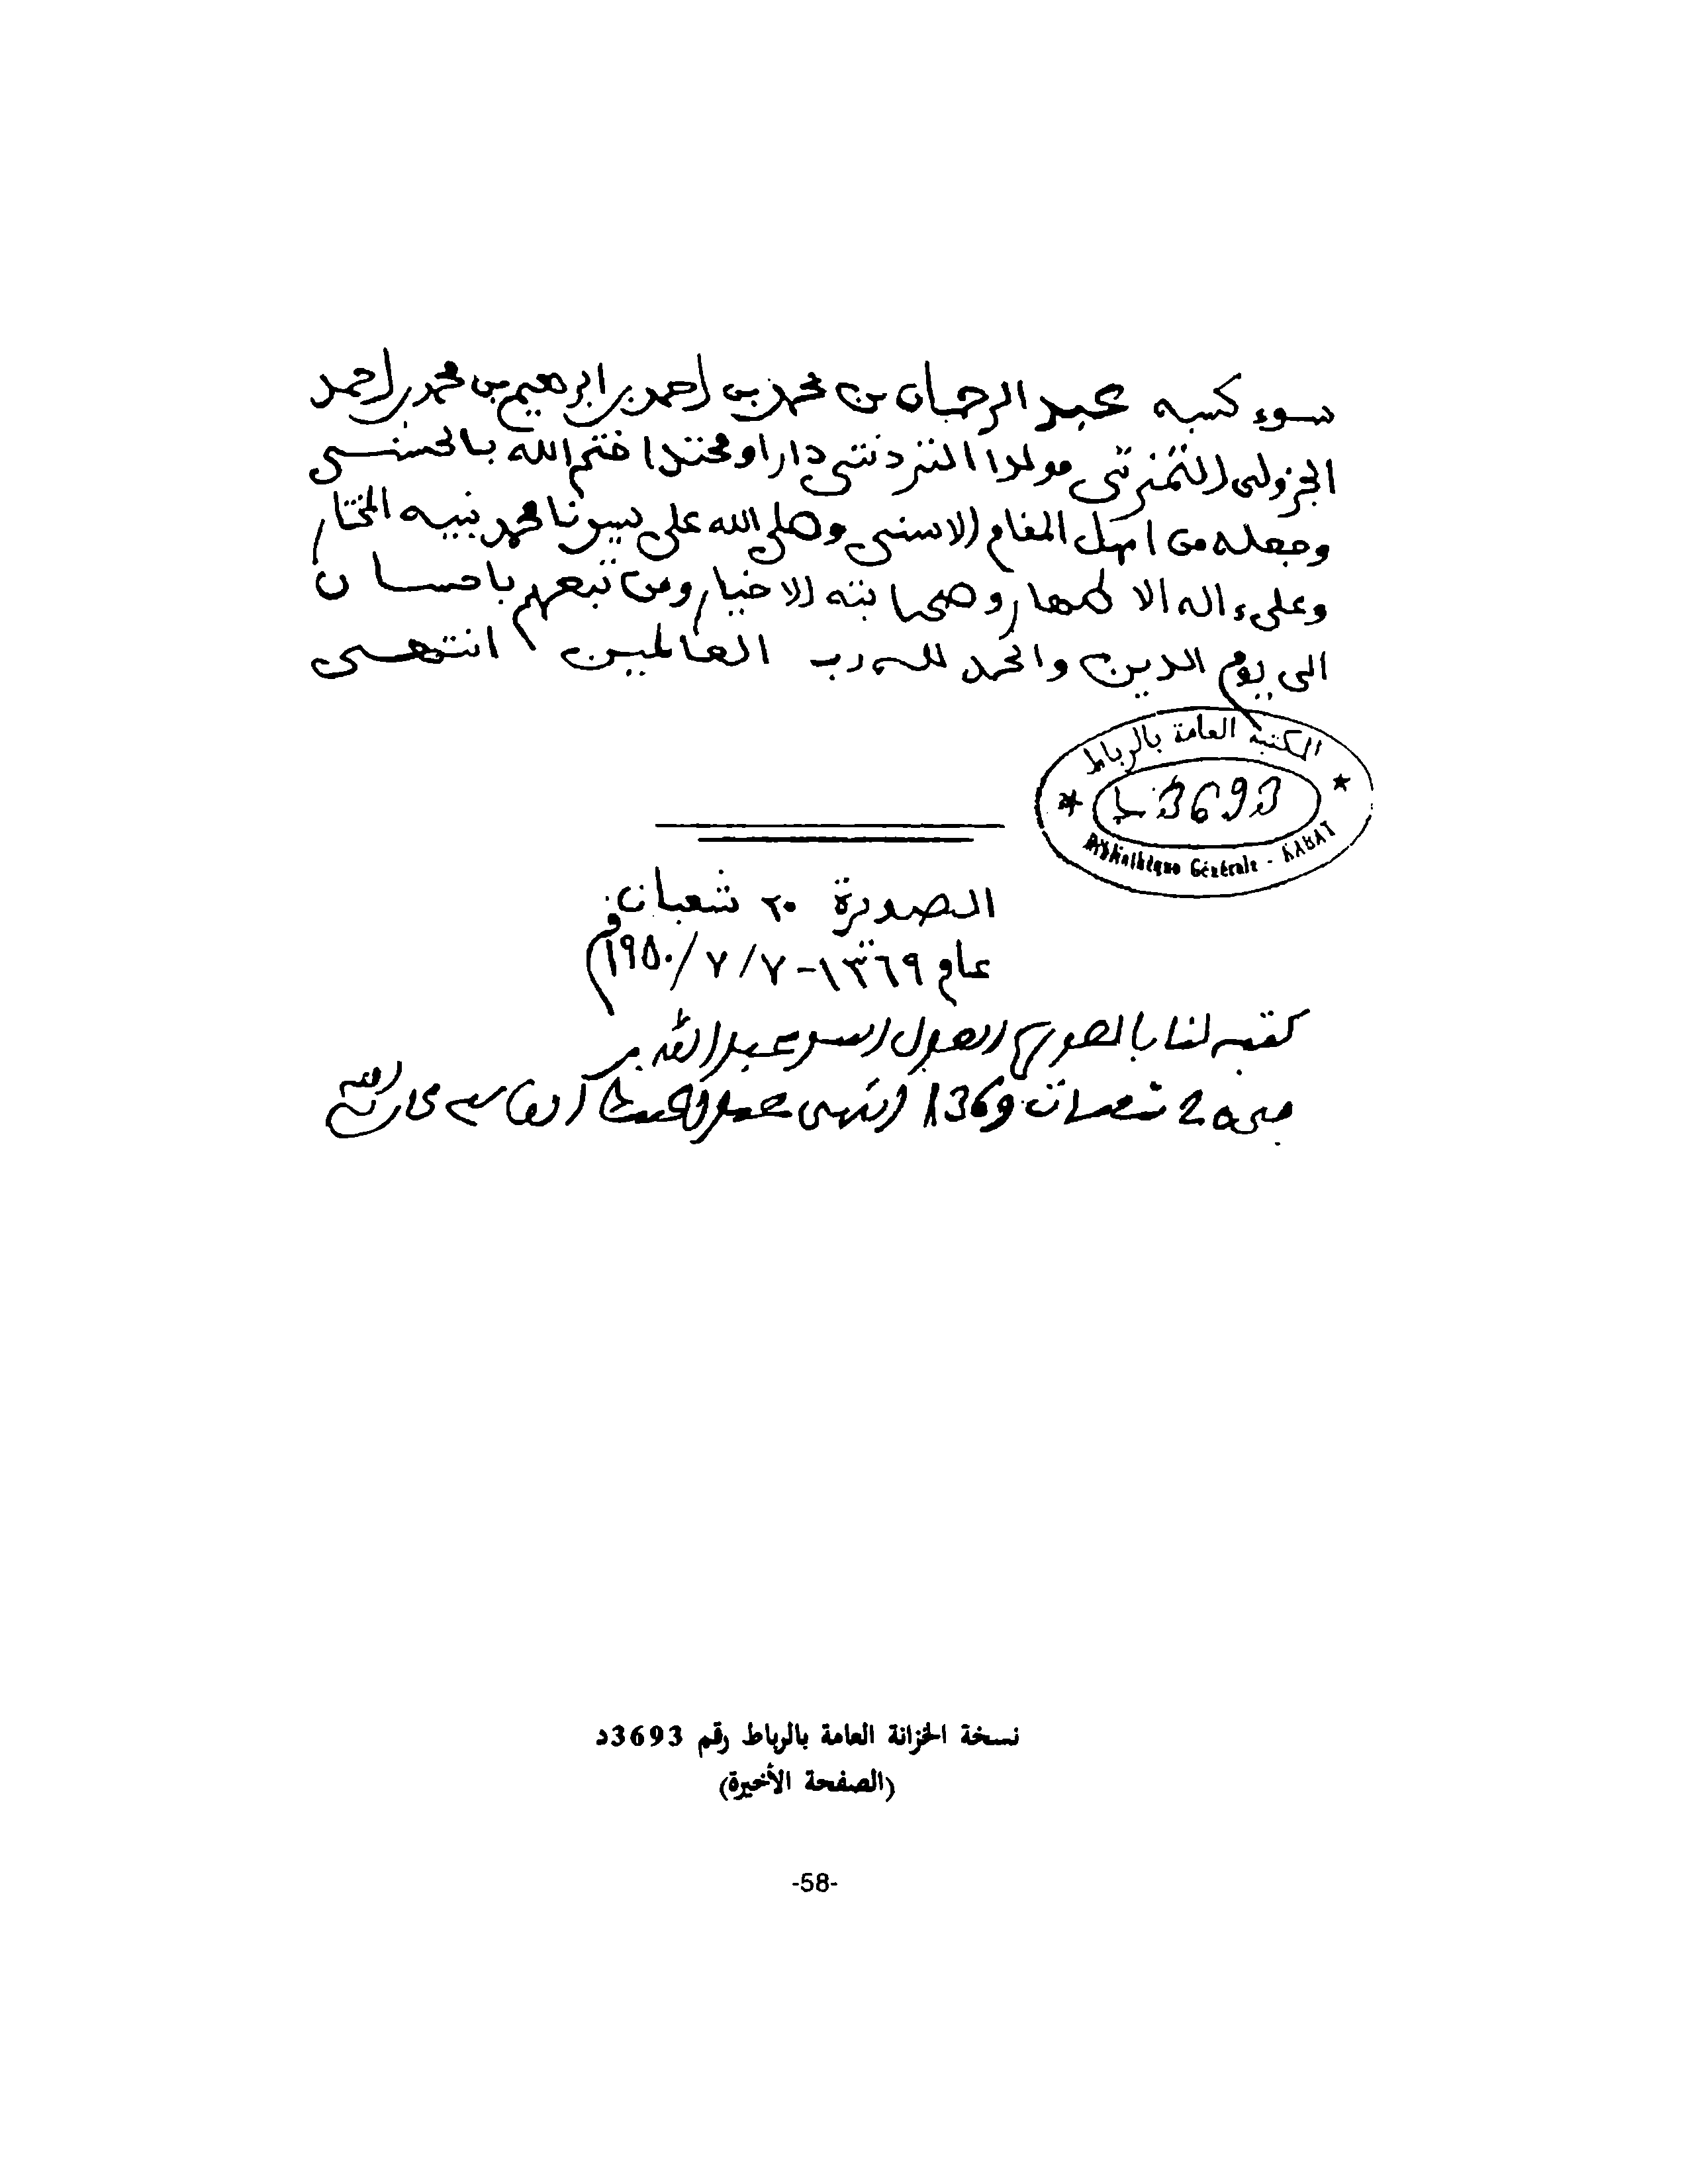 سوء كسبه عبد الرحمان بن محمد بن احمد بن ابرهيم بن محمد بن احمد
الجزولى التمنرتى مولدا التردنتى دارا ومحتدا ختم الله بالحسنى
وجعله من اهل المقام الاسنى وصلى الله على سيدنا محمد نبيه المختار
وعلىءاله الاطهار وصحابته الاخيار ومن تبعهم باحسان
الى يوم الدين والحمد لله رب العالمين انتهى
المكتبة العامة بالرباط
د 3693
Bibliothèque Générale - RABAT
الصويرة ٢٠ شعبان
عام ١٣٦٩-٧/٧/١٩٥٠م
كتبه لنا بالصويرة السيد عبد الله بن
20 شعبان 1369 انتهى
نسخة الخزانة العامة بالرباط رقم 3693د
(الصفحة الأخيرة)
-58-